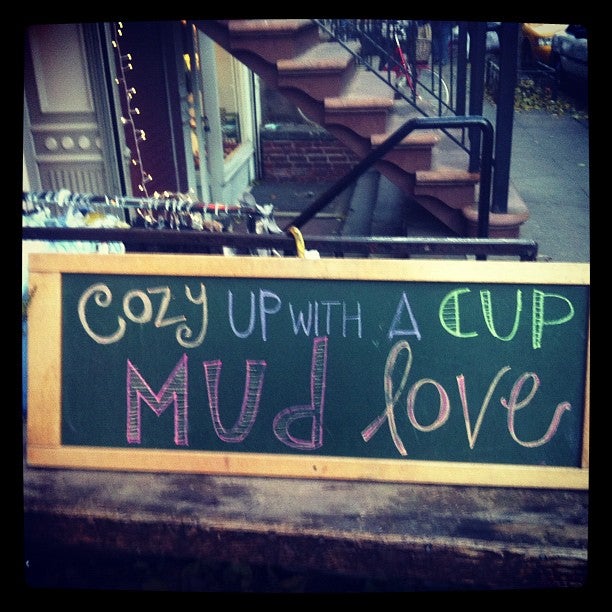 COZY UP WITH A CUP
MUd love